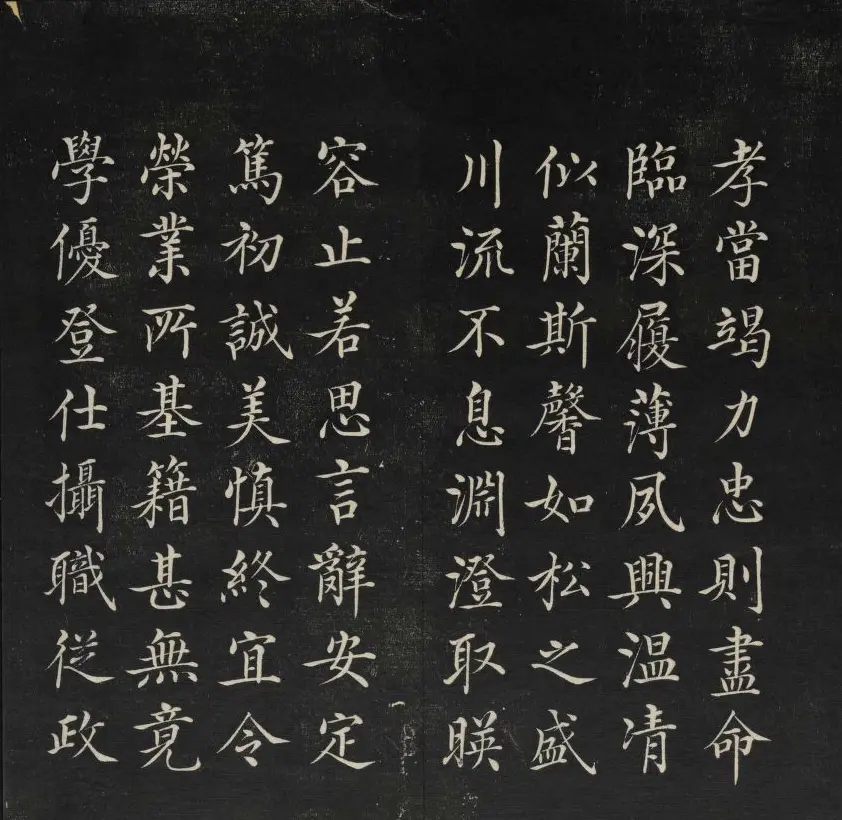 孝當竭力忠則盡命
臨深履薄夙興温凊
似蘭斯馨如松之盛
川流不息淵澄取暎
容止若思言辭安定
篤初誠美慎終宜令
榮業所基籍甚無竟
學優登仕攝職從政